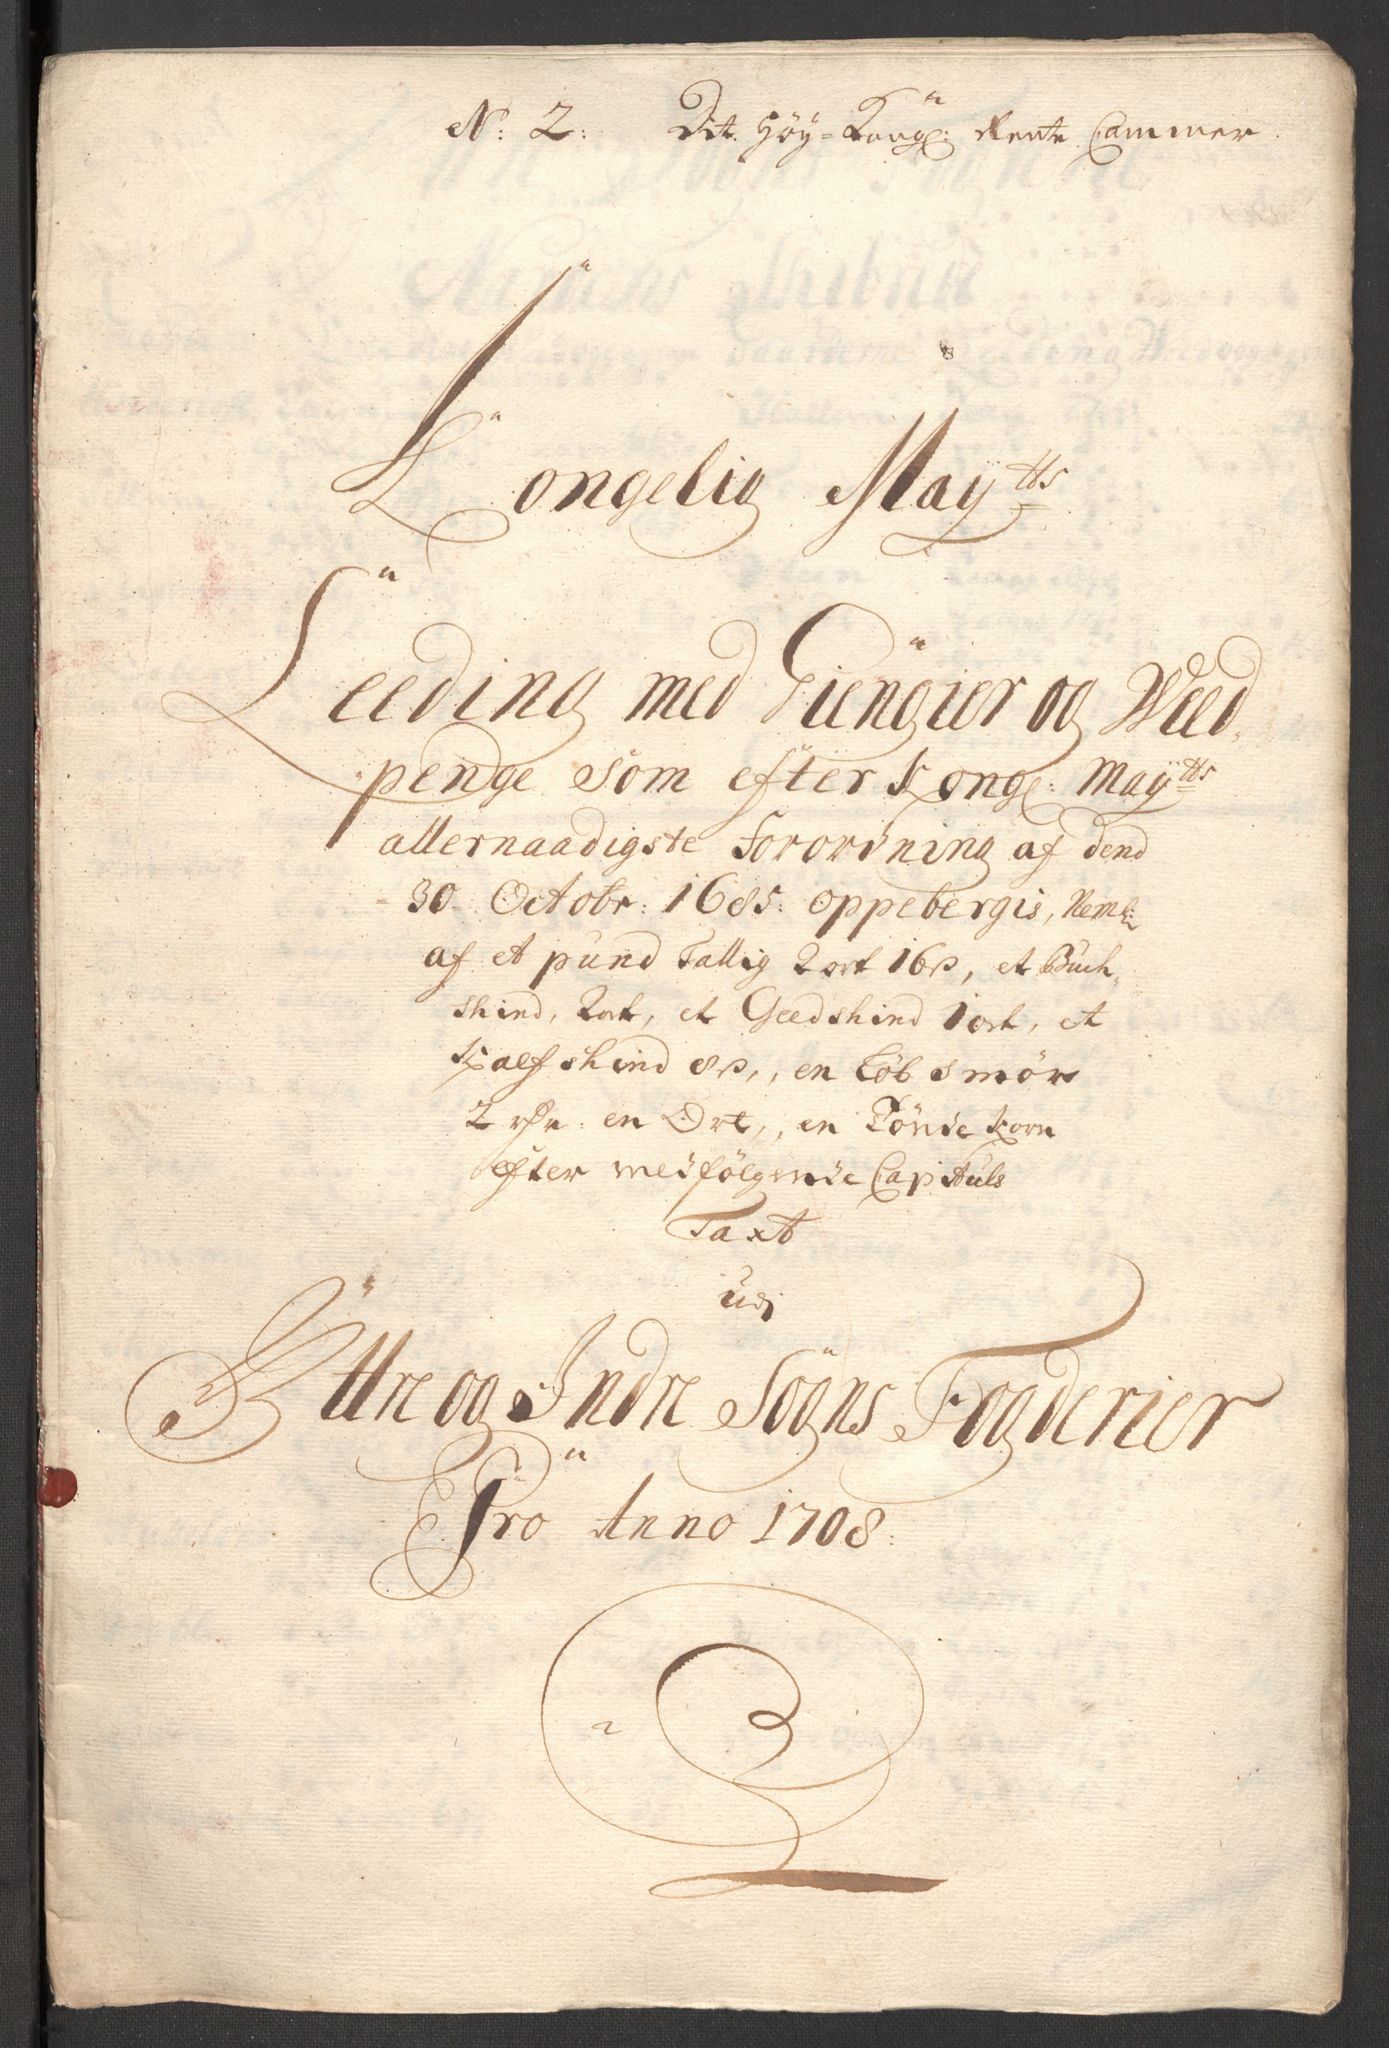 N: 2: Dit Höy-Kongl: Rente Cammer.
Kongelig Maytts
Leeding med Giengier og Weed,
penge som efter Kongl: Maytts
allernaadigste Forordning af dend
30 Octobr: 1685: oppebergis, Neml:
af et pund Tallig 2 ort 16 ß, et Buck,
skind, 2 ort, et Geedskind 1 ort, et
Kalfskind 8 ß,, en Løb Smör
2 rdr: en Ort,, en Tönde Korn
efter medfølgende Capituls
Taxt
udi
Yttre og Indre Sogns Fogderier
Pro Anno 1708: